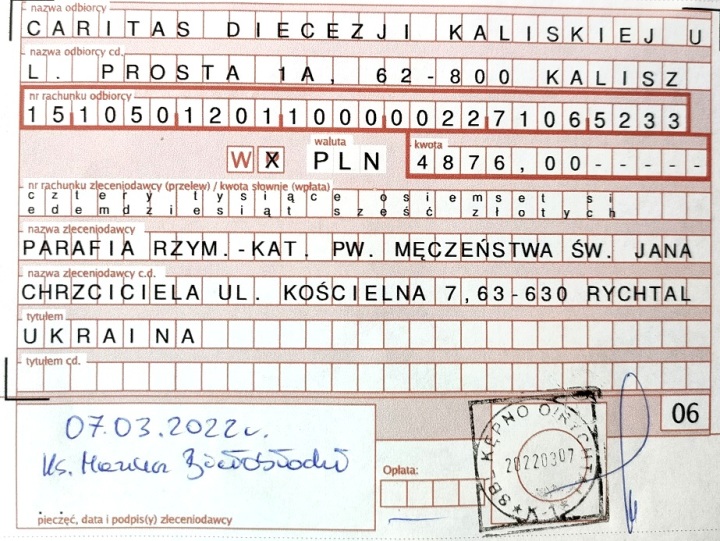 nazwa odbiorcy
CARITAS DIECEZJI KALISKIEJ U
nazwa odbiorcy cd.
L. PROSTA 1A, 62-800 KALISZ
nr rachunku odbiorcy
15105012011000002271065233
waluta
kwota
W X PLN 4876,00-----
nr rachunku zleceniodawcy (przelew) / kwota słownie (wpłata)
cztery tysiące osiemset si
edemdziesiąt sześć złotych
nazwa zleceniodawcy
PARAFIA RZYM.-KAT. PW. MĘCZEŃSTWA ŚW. JANA
nazwa zleceniodawcy c.d.
CHRZCICIELA UL. KOŚCIELNA 7,63-630 RYCHTAL
tytułem
UKRAINA
tytułem cd.
06
07.03.2022r.
Ks. Mariusz
Opłata:
SBL KĘPNO O/RYCHTAL
20220307
*K-1*
pieczęć, data i podpis(y) zleceniodawcy